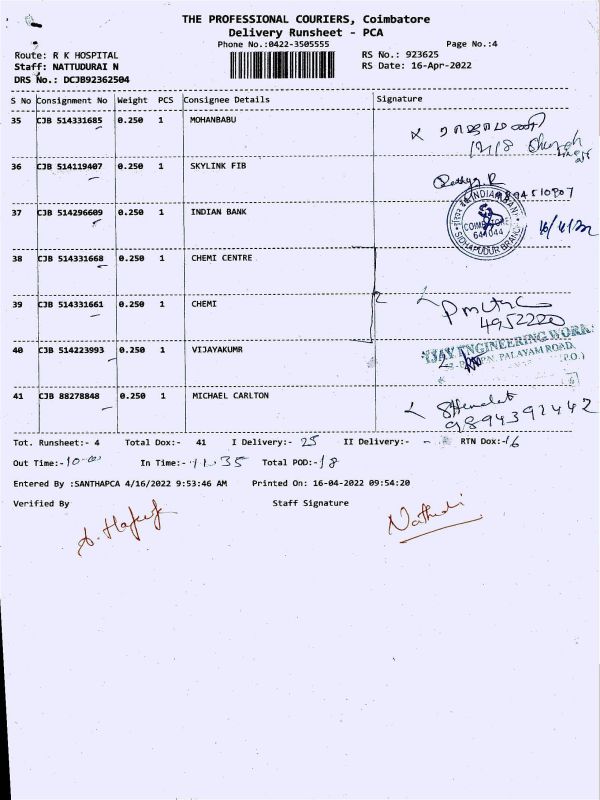 THE PROFESSIONAL COURIERS, Coimbatore
Delivery Runsheet - PCA
Phone No.:0422-3505555 Page No.:4
Route: R K HOSPITAL RS No.: 923625
Staff: NATTUDURAI N RS Date: 16-Apr-2022
DRS No.: DCJB92362504
S No Consignment No Weight PCS Consignee Details Signature
35 CJB 514331685 0.250 1 MOHANBABU
36 CJB 514119407 0.250 1 SKYLINK FIB
37 CJB 514296609 0.250 1 INDIAN BANK
INDIAN BANK
COIMBATORE
641044
SIDHAPUDUR BRANCH
16/4/22
38 CJB 514331668 0.250 1 CHEMI CENTRE
39 CJB 514331661 0.250 1 CHEMI
4952220
40 CJB 514223993 0.250 1 VIJAYAKUMR
ENGINEERING WORK
PALAYAM ROAD,
(P.O.)
41 CJB 88278848 0.250 1 MICHAEL CARLTON
9894391442
Tot. Runsheet:- 4 Total Dox:- 41 I Delivery:- 25 II Delivery:- - RTN Dox:-16
Out Time:-10-00 In Time:-11.35 Total POD:-18
Entered By :SANTHAPCA 4/16/2022 9:53:46 AM Printed On: 16-04-2022 09:54:20
Verified By Staff Signature